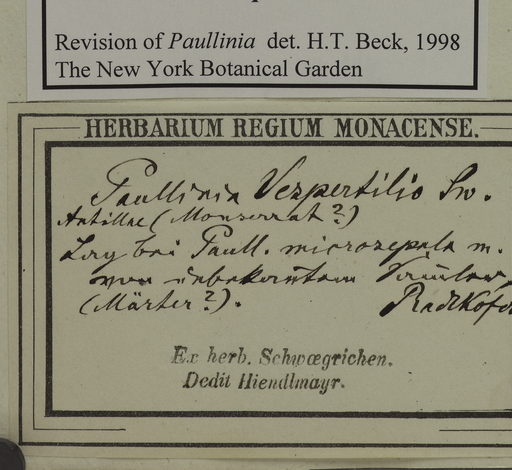 Revision of Paullinia det. H.T. Beck, 1998
The New York Botanical Garden
HERBARIUM REGIUM MONACENSE.
Paullinia Vespertilio Sw.
Antillae (Monserrat?)
Lag bei Paull. microsepala m.
von unbekanntem Sammler,
(Märter?). Radlkofer
Ex herb. Schwægrichen.
Dedit Hiendlmayr.